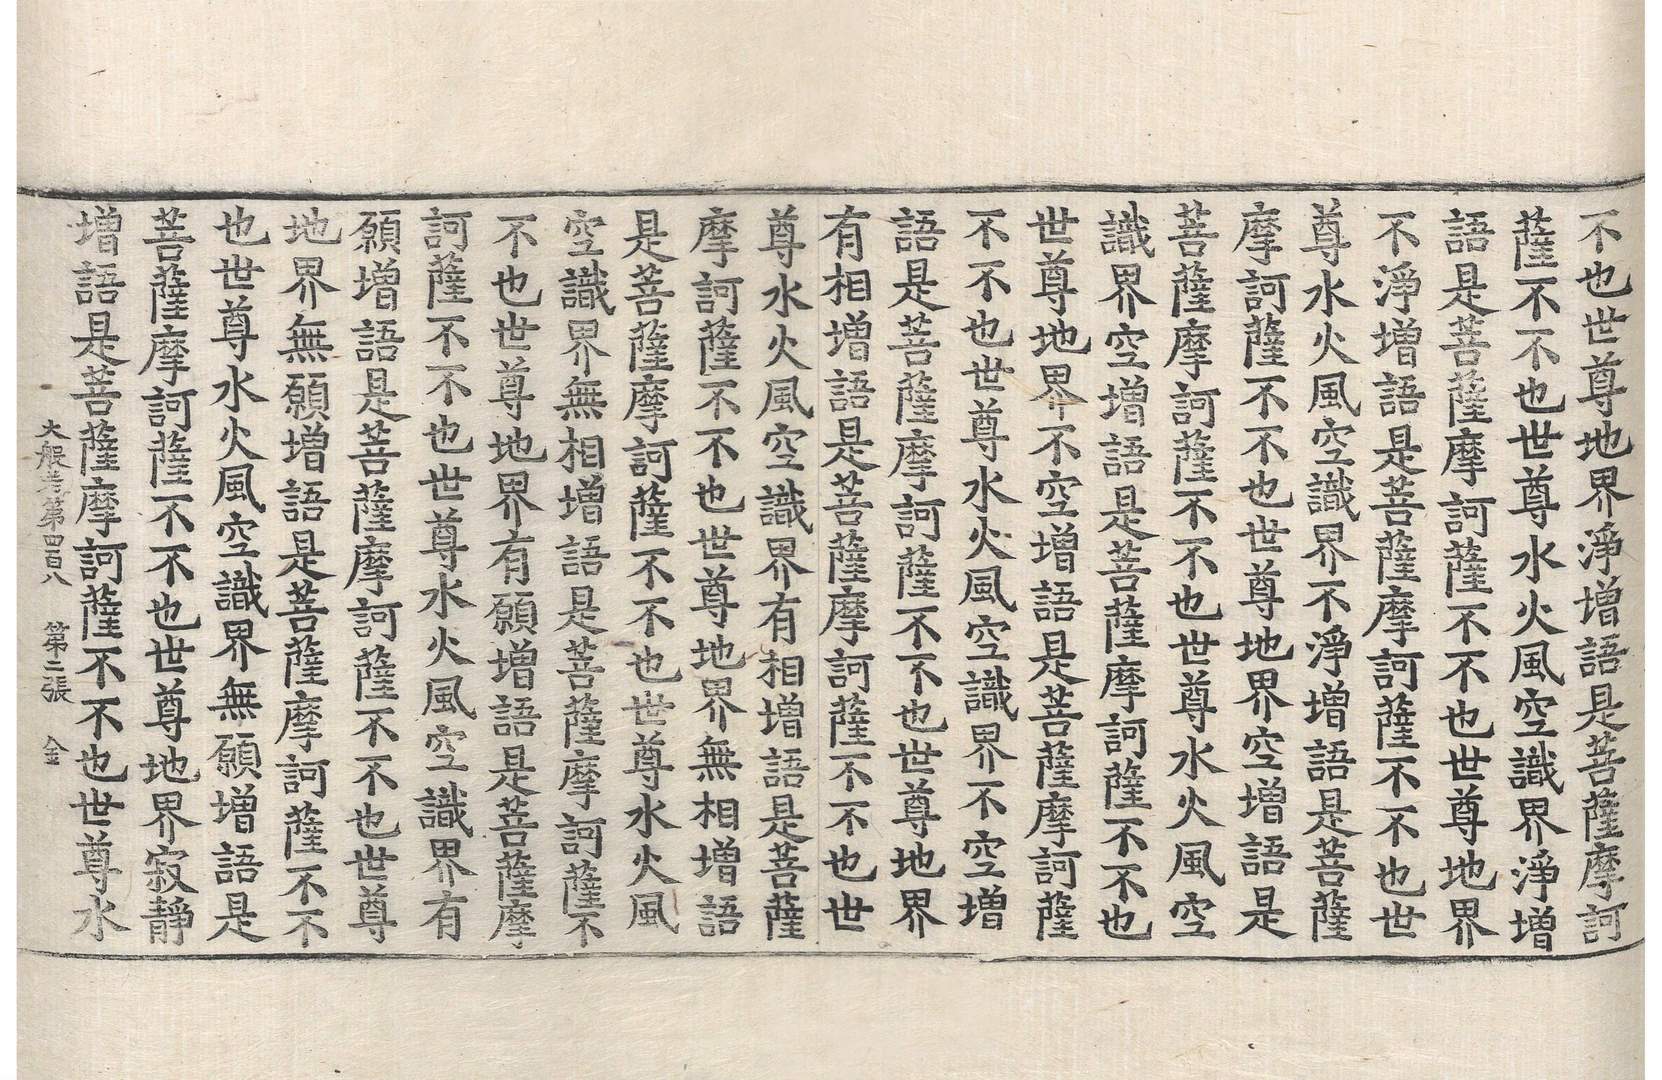 不也世尊地界淨增語是菩薩摩訶
薩不不也世尊水火風空識界淨增
語是菩薩摩訶薩不不也世尊地界
不淨增語是菩薩摩訶薩不不也世
尊水火風空識界不淨增語是菩薩
摩訶薩不不也世尊地界空增語是
菩薩摩訶薩不不也世尊水火風空
識界空增語是菩薩摩訶薩不不也
世尊地界不空增語是菩薩摩訶薩
不不也世尊水火風空識界不空增
語是菩薩摩訶薩不不也世尊地界
有相增語是菩薩摩訶薩不不也世
尊水火風空識界有相增語是菩薩
摩訶薩不不也世尊地界無相增語
是菩薩摩訶薩不不也世尊水火風
空識界無相增語是菩薩摩訶薩不
不也世尊地界有願增語是菩薩摩
訶薩不不也世尊水火風空識界有
願增語是菩薩摩訶薩不不也世尊
地界無願增語是菩薩摩訶薩不不
也世尊水火風空識界無願增語是
菩薩摩訶薩不不也世尊地界寂靜
增語是菩薩摩訶薩不不也世尊水
大般若第四百八 第二張 金